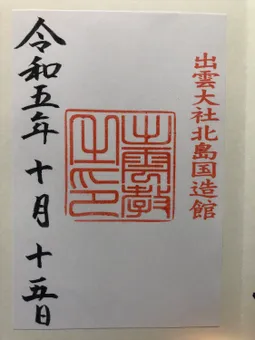 出雲大社北島国造館
出雲教
之印
令和五年 十月 十五日